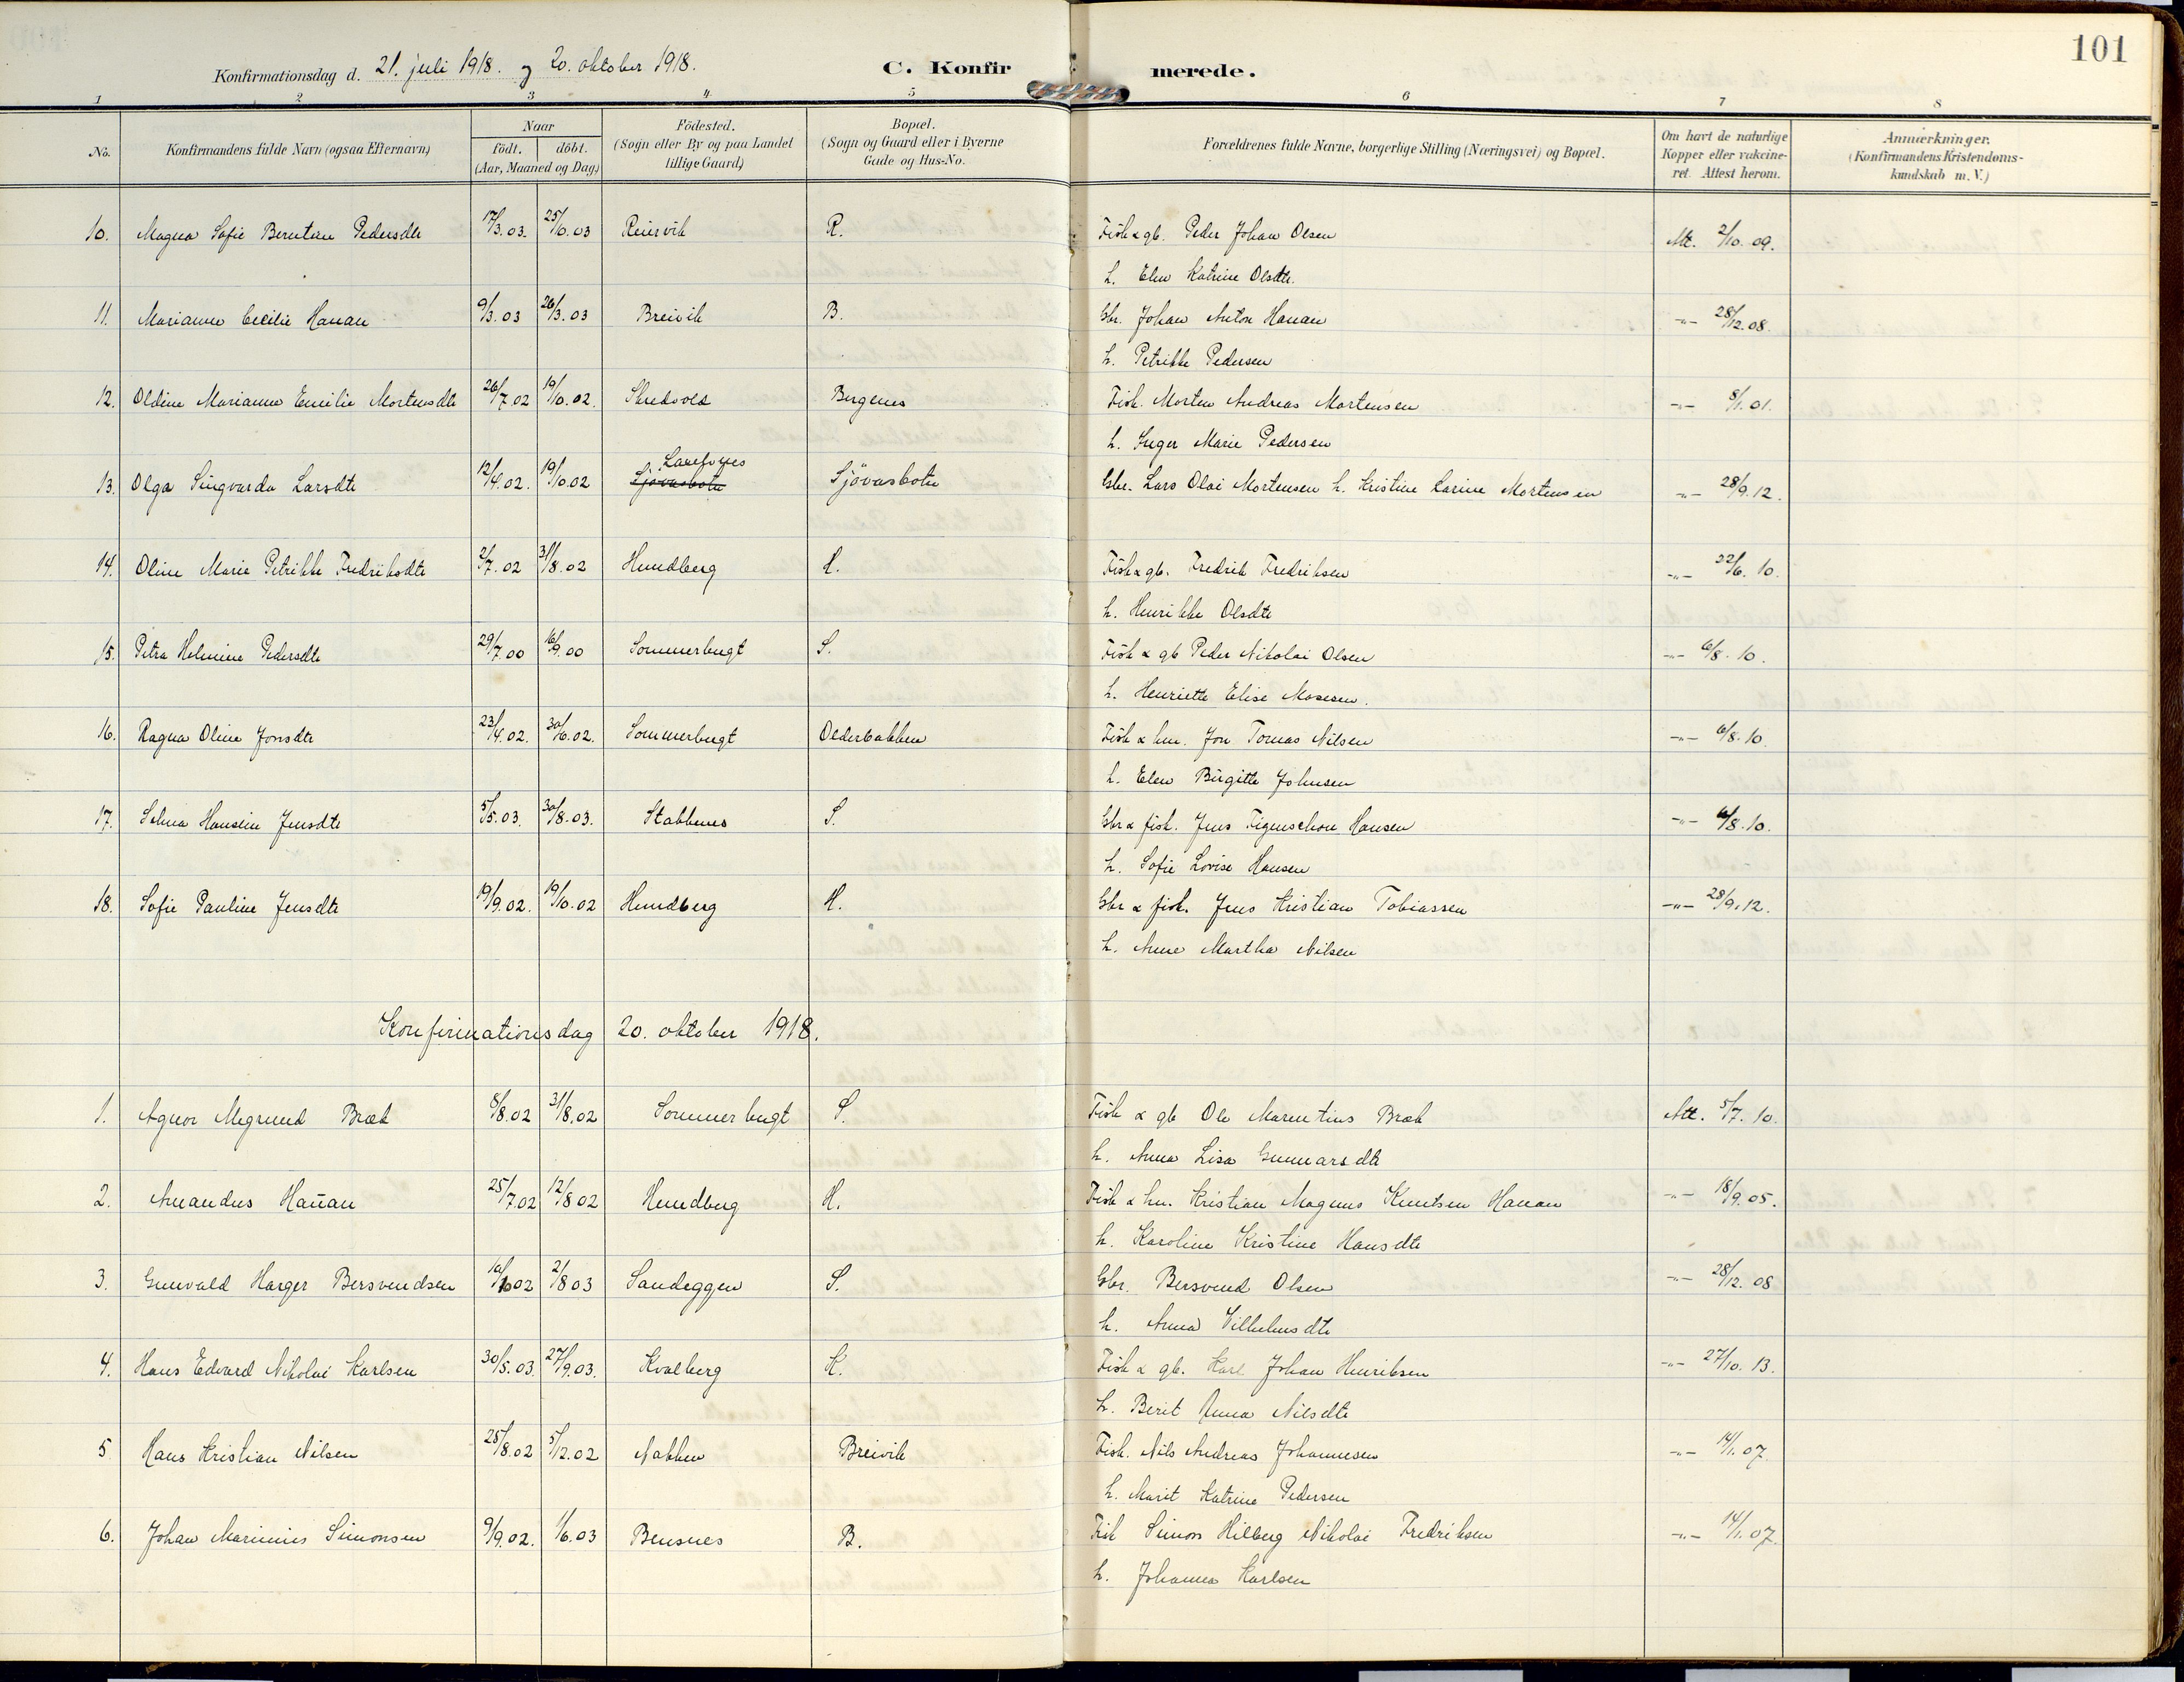 101
Konfirmationsdag d. 21. juli 1918. og 20. oktober 1918. C. Konfirmerede.
1 2 3 4 5 6 7 8
No. Konfirmandens fulde Navn (ogsaa Efternavn) Naar födt. döbt. (Aar, Maaned og Dag) Födested. (Sogn eller By og paa Landet tillige Gaard) Bopæl. (Sogn og Gaard eller i Byerne Gade og Hus-No. Forældrenes fulde Navne, borgerlige Stilling (Næringsvei) og Bopæl. Om havt de naturlige Kopper eller vakcineret. Attest herom. Anmærkninger. (Konfirmandens Kristendomskundskab m. V.)
10. Magna Sofie Berntine Pedersdtr 17/3.03. 25/10.03 Reiervik R. Fisk & gb. Peder Johan Olsen Att. 2/10.09.
h. Elen Katrine Olsdtr.
11. Marianne Cecilie Hanan 9/3.03 26/3.03 Breivik B. Gbr. Johan Anton Hanan -"- 28/12.08.
h. Petrikke Pedersen
12. Oldine Marianne Emilie Mortensdtr 26/7.02 19/10.02. Skredvold Bergenes Fisk. Morten Andreas Mortensen -"- 8/1.01.
h. Inger Marie Pedersen
13. Olga Singvarda Larsdtr 12/4.02. 19/10.02 Sjövasbotn Sjövasbotn Gbr. Lars Olai Mortensen h. Kristine Karine Mortensen -"- 28/9.12.
14. Oline Marie Petrikke Fredriksdtr 2/7.02 31/8.02 Hundberg H. Fisk & gb. Fredrik Fredriksen -"- 22/6.10.
h. Henrikke Olsdtr
15. Petra Helmine Pedersdtr 29/7.00 16/9.00 Sommerbugt S. Fisk & gb Peder Nikolai Olsen -"- 6/8.10.
h. Henriette Elise Mosesen.
16. Ragna Oline Jonsdtr 23/4.02. 30/6.02. Sommerbugt Olderbakken Fisk & hm. Jon Tomas Nilsen -"- 6/8.10.
h. Elen Birgitte Johnsen
17. Selma Hansine Jensdtr 5/5.03. 30/8.03. Stabbenes S. Gbr & fisk. Jens Figenschou Hansen -"- 6/8.10.
h. Sofie Lovise Hansen
18. Sofie Pauline Jensdtr 19/9.02. 19/10.02 Hundberg H. Gbr & fisk. Jens Kristian Tobiassen -"- 28/9.12.
h. Anne Martha Nilsen
Konfirmationsdag 20. oktober 1918.
1. Agnor Megrund Bræk 8/8.02 31/8.02 Sommerbugt S. Fisk & gb Ole Marentius Bræk Att. 5/7.10.
h. Anna Lisa Gunnarsdtr
2. Amandus Hanan 25/7.02 12/8 02 Hundberg H. Fisk & hm. Kristian Magnus Knutsen Hanan -"- 18/9.05.
h. Karoline Kristine Hansdtr
3. Gunvald Harger Bersvendsen 02 2/8 03 Sandeggen S. Gbr. Bersvend Olsen -"- 28/12.08
h. Anna Vilhelmsdtr
4. Hans Edvard Nikolai Karlsen 30/5.03. 27/9.03. Kvalberg K. Fisk & gb. Karl Johan Henriksen -"- 27/10.13.
h. Berit Anna Nilsdtr
5 Hans Kristian Nilsen 25/8.02 5/12.02 Nakken Breivik Fisk. Nils Andreas Johannesen -"- 14/1.07.
h. Marit Katrine Pedersen
6. Johan Marinius Simonsen 9/9.02. 1/6.03 Bensnes B. Fisk Simon Hilberg Nikolai Fredriksen -"- 14/1.07.
h. Johanna Karlsen